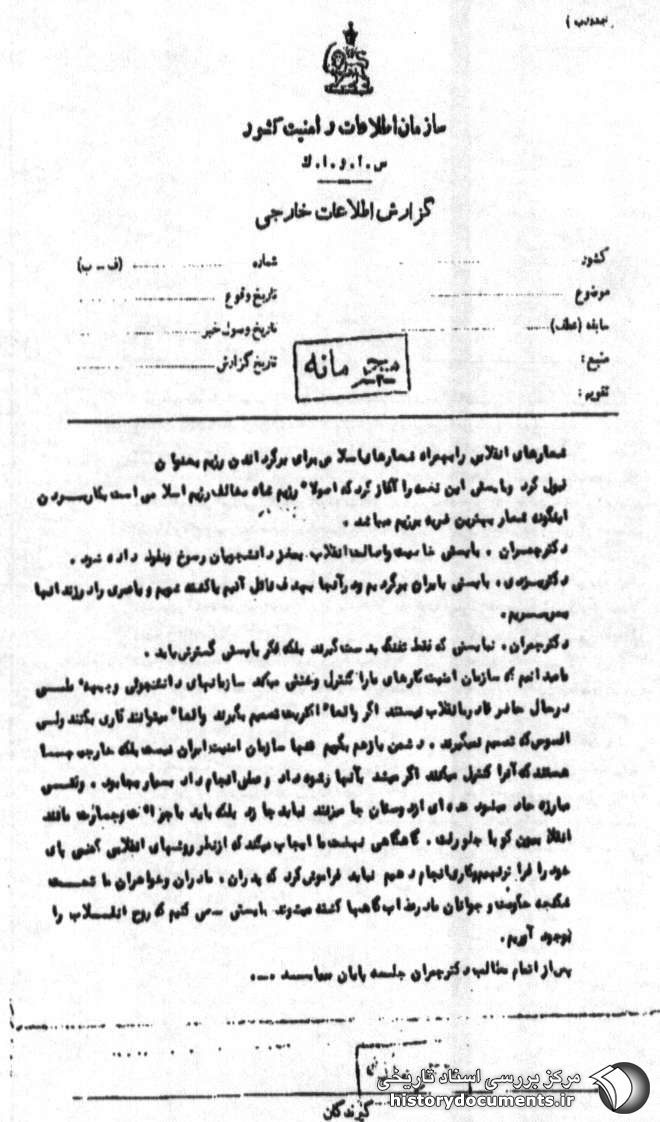 سازمان اطلاعات و امنیت کشور
س . ا . و . ا . ك
گزارش اطلاعات خارجی
کشور
شماره (ف - ب)
موضوع
تاریخ وقوع
سابقه (عطف)
تاریخ وصول خبر
منبع :
تاریخ گزارش
محرمانه
تقویم :
شعارهای انقلابی را بهمراه شعارهای اسلامی برای برگرداندن رژیم بعنوان
قبول کرد وبایستی این نهضت را آغاز کرد که اصولا" رژیم شاه مخالف رژیم اسلامی است بکاربردن
اینگونه شعار بهترین ضربه برژیم میباشد .
دکترچمران . بایستی خاصیت واصالت انقلاب بدانشجویان رسوخ ونفوذ داده شود .
دکتریزدی . بایستی بایران برگردیم ودرآنجا بهدف نائل آئیم یاکشته شویم
دکترچمران . نبایستی که فقط تفنگ بدست گیرند بلکه فکر بایستی گسترش یابد .
مامیدانیم که سازمان امنیت کارهای مارا کنترل وخنثی میکند سازمانهای دانشجوئی وجبهه ملی
درحال حاضر قادربانقلاب نیستند اگر واقعا" اکثریت تصمیم بگیرند واقعا" میتوانند کاری بکنند ولی
افسوس که تصمیم نمیگیرند . دشمن بازهم بگویم تنها سازمان امنیت ایران نیست بلکه خارجی
هستند که آنرا کنترل میکنند اگر میشد بآنها رشوه داد وعملی انجام داد بسیار بجابود . وقتی
مبارزه حاد میشود عده ای ازدوستان جا میزنند نباید جا زد بلکه باید باجرات وجسارت مانند
انقلابیون کوبا جلو رفت . گاهگاهی نهضت ما ایجاب میکند که ازنظر روشهای انقلابی کمی پای
خود را فرا ترنهیم وکاری انجام دهیم نباید فراموش کرد که پدران . مادران وخواهران ما تحت
شکنجه حکومت وجوانان مادرعذاب گاهها کشته میشوند بایستی سعی کنیم که روح انقلاب را
بوجود آوریم .
پس از اتمام مطالب دکترچمران جلسه پایان میابد ...
گیرندگان
مرکز بررسی اسناد تاریخی
historydocuments.ir